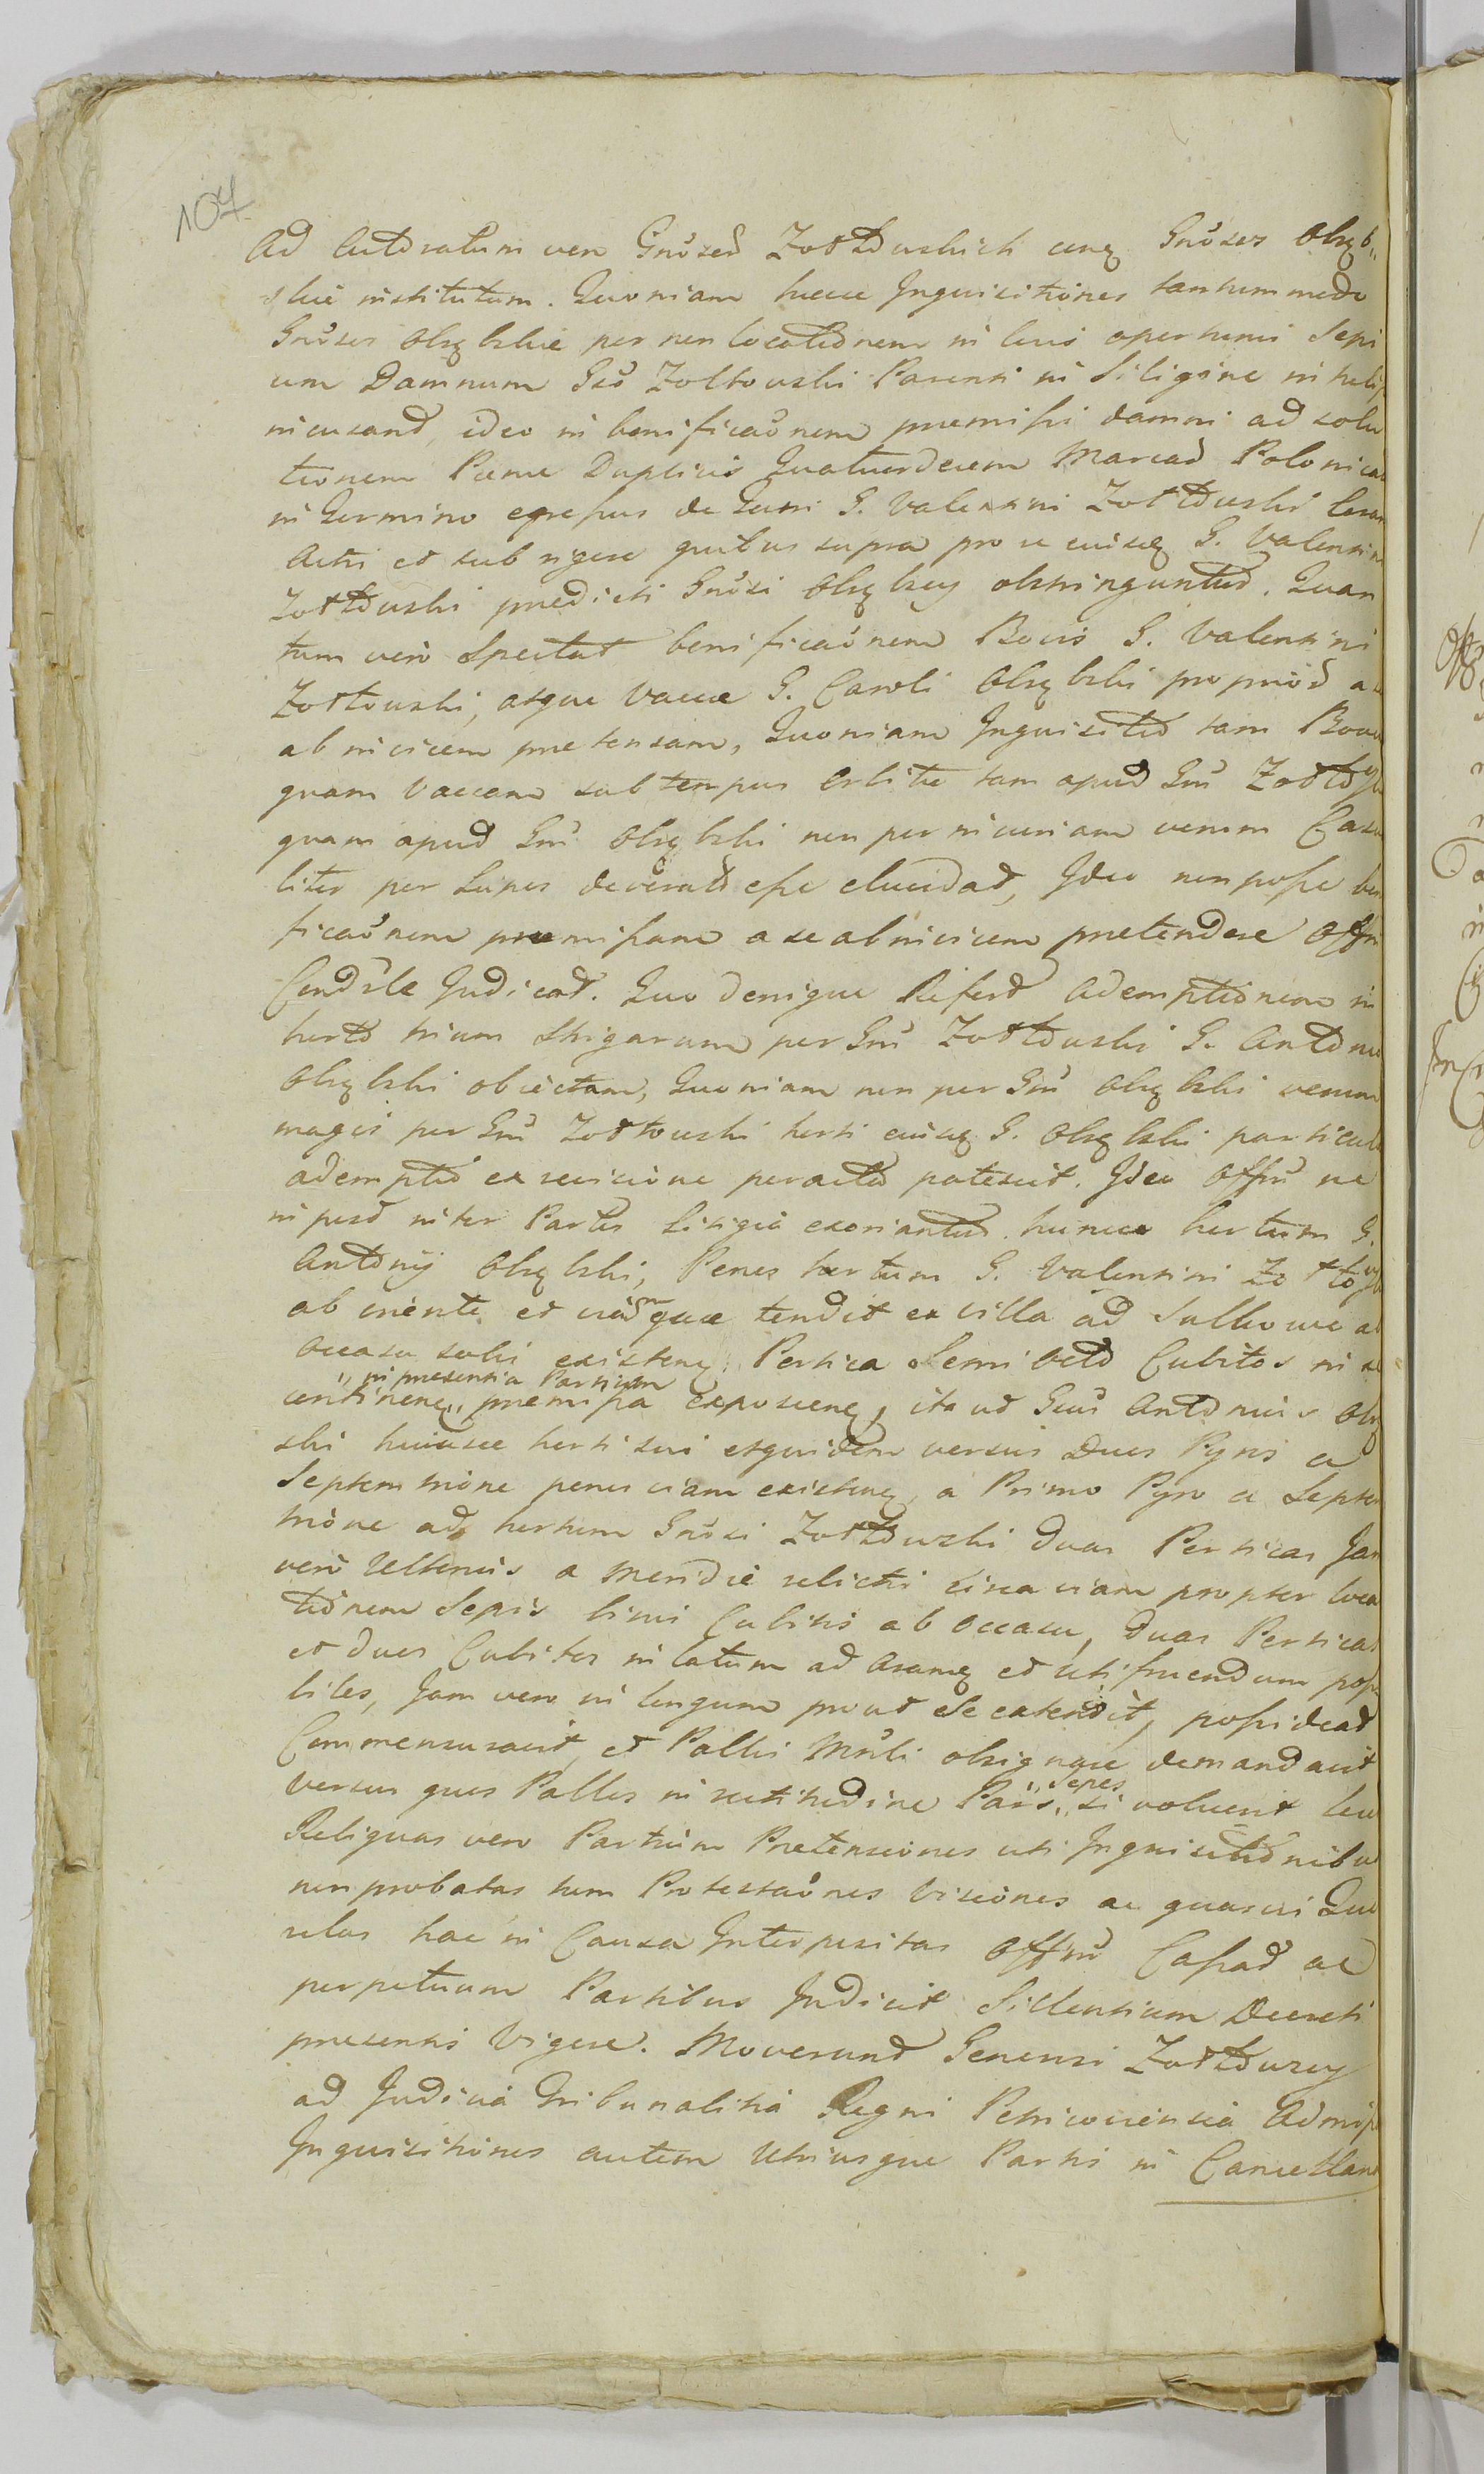 107
Ad Actoratum vero Gnoser Zołtowskich erg Gnosos Obręb„
skie institutum. Quoniam huicce Inquisitiones tantummodo
Gnosos Obrębskie per non locationem in loco opertunis Sepi
um Damnum Gso Zoltowski Parenti in Siligine
incusant, ideo in bonificaonem premissi damni ad solu
tionem Pœnæ Duplicis Quatuordecem Marcar Polonica
in Termino egressus de Terri G. Valentini Zołtowski
Acti et sub rigore quibus supra pro se eiusq G. Valentin
Zołtowski predicti Gnosi Obrębscy obstringuntur. Quan
tum vero Spectat bonificaonem Bovis G. Valentini
Zołtowski, atque Vaccæ G. Caroli Obrębski proprior a
ab invicem pretensam, Quoniam Inquisitio tam Bovem
quam Vaccam sub tempus Orbitæ tam apud Gm Zołtow
quam apud Gm Obrębski non per incuriam verum Casu
liter per Lupos devorato esse elucidat, Ideo non posse
ficaonem premissam a se ab invicem pretendere Offm
Condsle Judicat. Quo denique Refert ademptionem in
horto trium Strigarum per Gm Zołtowski G. Antoni
Obrębski obiectam, Quoniam non per Gm Obrębski verum
magis per Gm Zołtowski horti eiusq G. Obrębski particula
ademptio ex revisione peracta patescit. Ideo Offm ne
in post inter Partes Litigia exoriantur huncce hortum G.
Antonÿ Obrębski, Penes hortum G. Valentini Zołto
ab oriente et viam quæ tendit ex villa ad Sulkowe a
occasu solis existeng Pertica Semi octo Cubitos in se
„in presentia Partium
contineng„ premissa exposceng, ita ut Gsus Antonius Obrę
ski huiusce horti sui etquidem versus Duos Pyros a
Septemtrione penes viam existeng, a Primo Pyro a Septem
trione ad hortum Gnosi Zołtowski Duas Perticas Jam
vero Ulterius a Meridie relicti circa viam propter loca
tionem Sepis binis Cubitis ab Occasu, Duas Perticas
et duos Cubitos in latum ad Arang et utifruendum
biles, Jam vero in longum prout se extendit, possideat
Commensuravit, et Pallis Mnli obsignare demandavit
Versus quos Pallos in rectitudine Pars „Sepes„ si voluerit
Reliquas vero Partium Pretensiones uti Inquisitionibus
non probatas tum Protestaones Visiones ac quasvis Que
relas hac in Causa Interpositas Offm Cassat ac
perpetuum Partibus Indicit Sillentium Decreti
presentis Vigore. Moverunt Generosi Zołtowscy
ad Judicia Tribunalitia Regni Petricoviensia Admiss
Inquisitiones autem Utriusque Partis in Cancellari